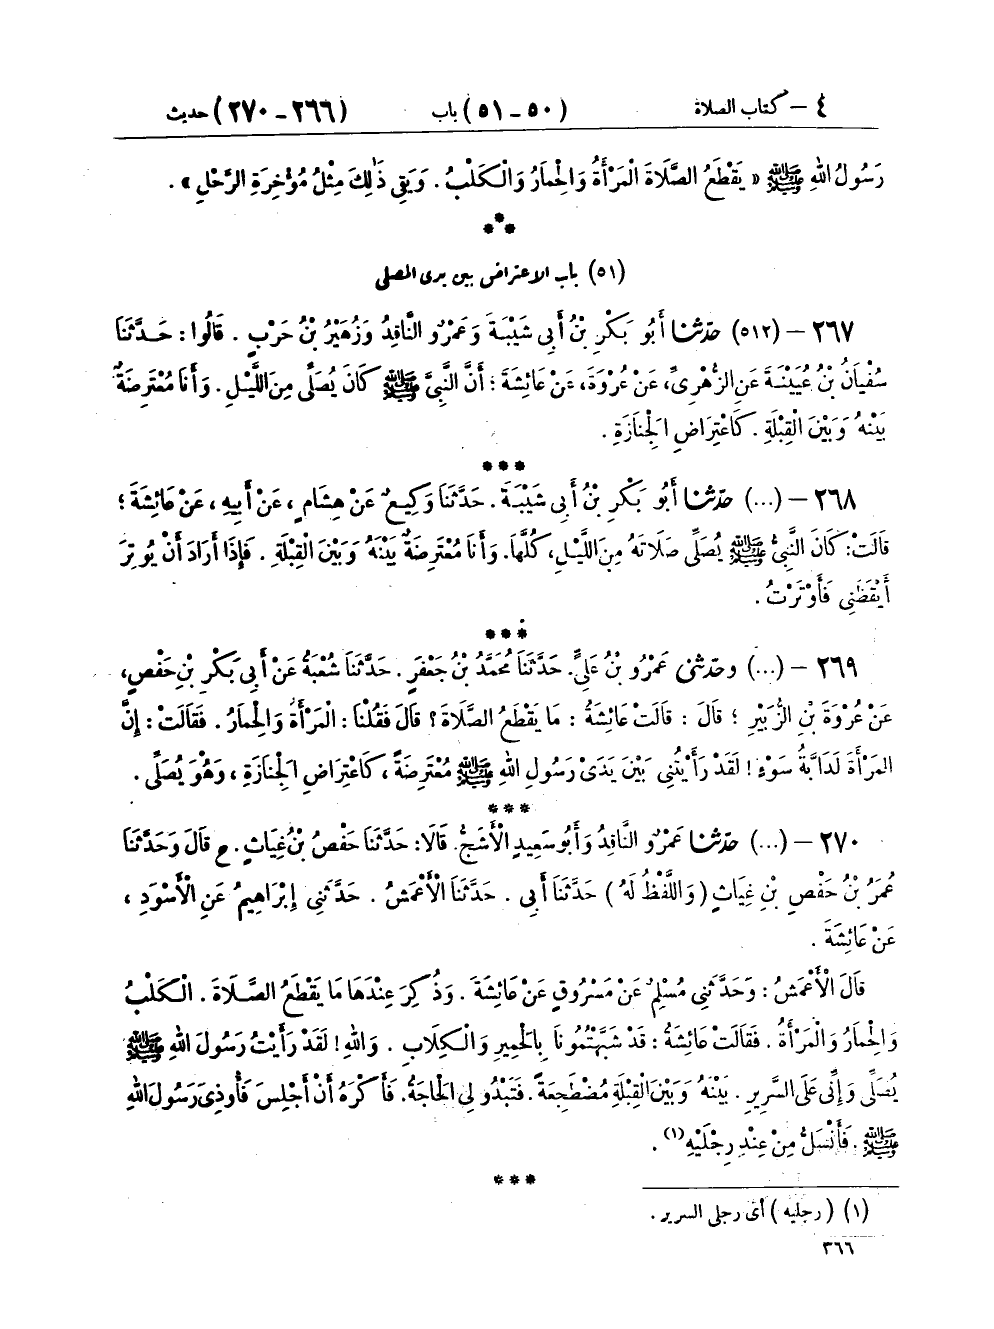 ٤ – كتاب الصلاة (٥٠ – ٥١) باب (٢٦٦ – ٢٧٠) حديث
رَسُولُ اللهِ ﷺ « يَقْطَعُ الصَّلَاةَ الْمَرْأَةُ وَالْحِمَارُ وَالْكَلْبُ . وَيَقِي ذَٰلِكَ مِثْلُ مُؤْخِرَةِ الرَّحْلِ » .
***
(٥١) باب الاعتراض بين يدى المصلى
٢٦٧ – (٥١٢) حَدَّثَنَا أَبُو بَكْرِ بْنُ أَبِي شَيْبَةَ وَعَمْرٌو النَّاقِدُ وَزُهَيْرُ بْنُ حَرْبٍ . قَالُوا : حَدَّثَنَا
سُفْيَانُ بْنُ عُيَيْنَةَ عَنِ الزُّهْرِيِّ، عَنْ عُرْوَةَ، عَنْ عَائِشَةَ ؛ أَنَّ النَّبِيَّ ﷺ كَانَ يُصَلِّي مِنَ اللَّيْلِ . وَأَنَا مُعْتَرِضَةٌ
بَيْنَهُ وَبَيْنَ الْقِبْلَةِ . كَاعْتِرَاضِ الْجَنَازَةِ .
***
٢٦٨ – (...) حَدَّثَنَا أَبُو بَكْرِ بْنُ أَبِي شَيْبَةَ . حَدَّثَنَا وَكِيعٌ عَنْ هِشَامٍ ، عَنْ أَبِيهِ ، عَنْ عَائِشَةَ ؛
قَالَتْ: كَانَ النَّبِيُّ ﷺ يُصَلِّي صَلَاتَهُ مِنَ اللَّيْلِ، كُلَّهَا. وَأَنَا مُعْتَرِضَةٌ بَيْنَهُ وَبَيْنَ الْقِبْلَةِ . فَإِذَا أَرَادَ أَنْ يُوتِرَ
أَيْقَظَنِي فَأَوْتَرْتُ .
***
٢٦٩ – (...) وحَدَّثَنِي عَمْرُو بْنُ عَلِيٍّ. حَدَّثَنَا مُحَمَّدُ بْنُ جَعْفَرٍ . حَدَّثَنَا شُعْبَةُ عَنْ أَبِي بَكْرِ بْنِ حَفْصٍ،
عَنْ عُرْوَةَ بْنِ الزُّبَيْرِ ؛ قَالَ : قَالَتْ عَائِشَةُ : مَا يَقْطَعُ الصَّلَاةَ ؟ قَالَ فَقُلْنَا : الْمَرْأَةُ وَالْحِمَارُ . فَقَالَتْ : إِنَّ
الْمَرْأَةَ لَدَابَّةُ سَوْءٍ ! لَقَدْ رَأَيْتُنِي بَيْنَ يَدَيْ رَسُولِ اللهِ ﷺ مُعْتَرِضَةً ، كَاعْتِرَاضِ الْجَنَازَةِ ، وَهُوَ يُصَلِّي .
***
٢٧٠ – (...) حَدَّثَنَا عَمْرٌو النَّاقِدُ وَأَبُو سَعِيدٍ الْأَشَجُّ. قَالَا: حَدَّثَنَا حَفْصُ بْنُ غِيَاثٍ . ح قَالَ وَحَدَّثَنَا
عُمَرُ بْنُ حَفْصِ بْنِ غِيَاثٍ ( وَاللَّفْظُ لَهُ ) حَدَّثَنَا أَبِي . حَدَّثَنَا الْأَعْمَشُ . حَدَّثَنِي إِبْرَاهِيمُ عَنِ الْأَسْوَدِ ،
عَنْ عَائِشَةَ .
قَالَ الْأَعْمَشُ : وَحَدَّثَنِي مُسْلِمٌ عَنْ مَسْرُوقٍ عَنْ عَائِشَةَ . وَذُكِرَ عِنْدَهَا مَا يَقْطَعُ الصَّلَاةَ . الْكَلْبُ
وَالْحِمَارُ وَالْمَرْأَةُ . فَقَالَتْ عَائِشَةُ : قَدْ شَبَّهْتُمُونَا بِالْحَمِيرِ وَالْكِلَابِ . وَاللهِ ! لَقَدْ رَأَيْتُ رَسُولَ اللهِ ﷺ
يُصَلِّي وَإِنِّي عَلَى السَّرِيرِ . بَيْنَهُ وَبَيْنَ الْقِبْلَةِ مُضْطَجِعَةً . فَتَبْدُو لِي الْحَاجَةُ. فَأَكْرَهُ أَنْ أَجْلِسَ فَأُوذِيَ رَسُولَ اللهِ
ﷺ . فَأَنْسَلُّ مِنْ عِنْدِ رِجْلَيْهِ(١) .
***
(١) ( رجليه ) أى رجلى السرير .
٣٦٦